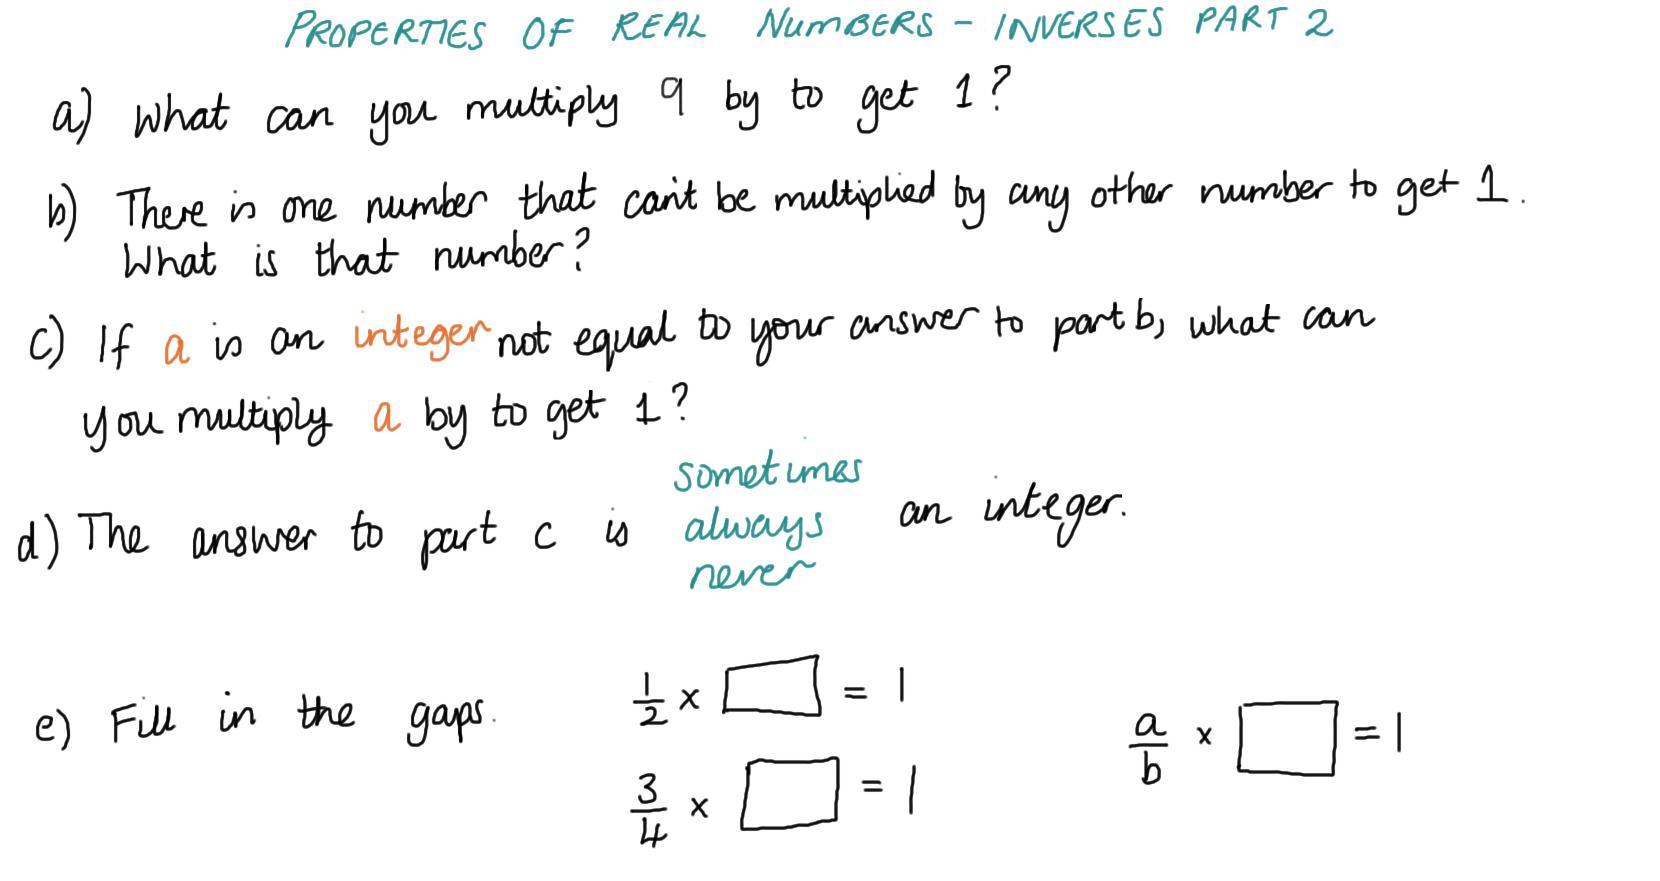 PROPERTIES OF REAL NUMBERS - INVERSES PART 2
a) What can you multiply 9 by to get 1?
b) There is one number that can't be multiplied by any other number to get 1.
What is that number?
c) If a is an integer not equal to your answer to part b, what can
you multiply a by to get 1?
sometimes
d) The answer to part c is always an integer.
never
e) Fill in the gaps.
1/2 × □ = 1
a/b × □ = 1
3/4 × □ = 1